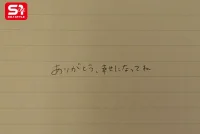 S1
ありがとう、幸せになってね